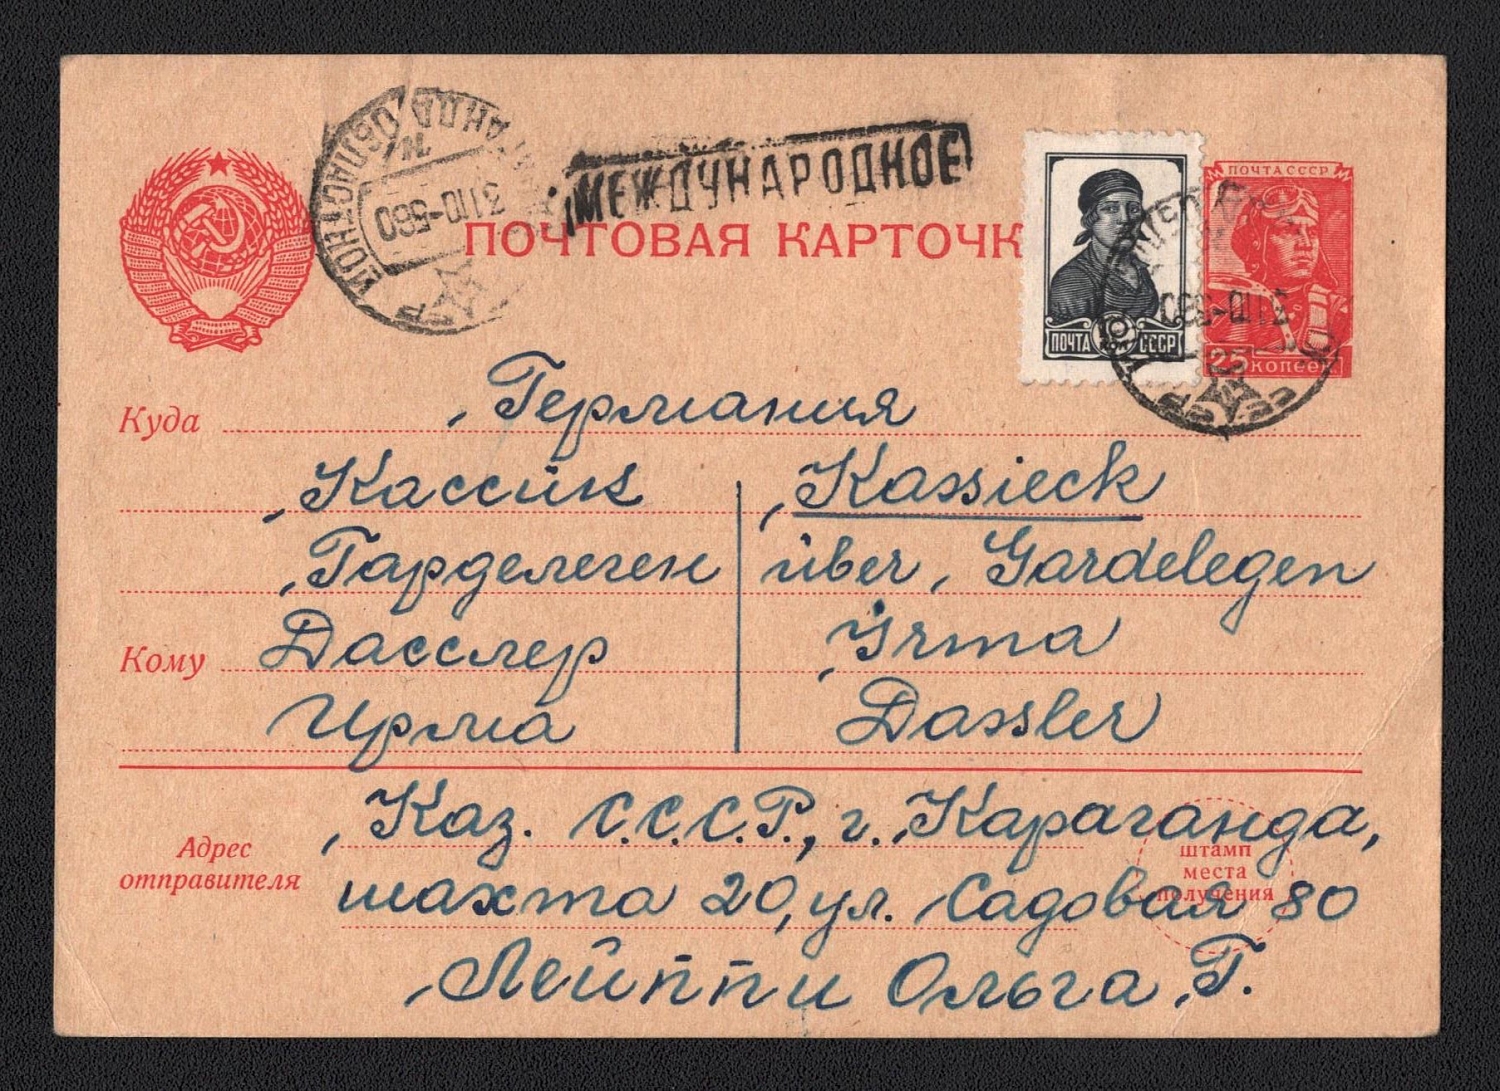 МЕЖДУНАРОДНОЕ
ПОЧТОВАЯ КАРТОЧК
ПОЧТА СССР
25 КОПЕЕК
10 КОП
ПОЧТА СССР
КАЗ ССР
31 10-56 0
Куда Германия
Кассик Kassieck
Гарделеген über Gardelegen
Кому Дасслер Irma
Ирма Dassler
Адрес отправителя
Каз. С.С.С.Р., г. Караганда,
шахта 20, ул. Садовая 80
Лейппи Ольга Г.
штамп
места
получения